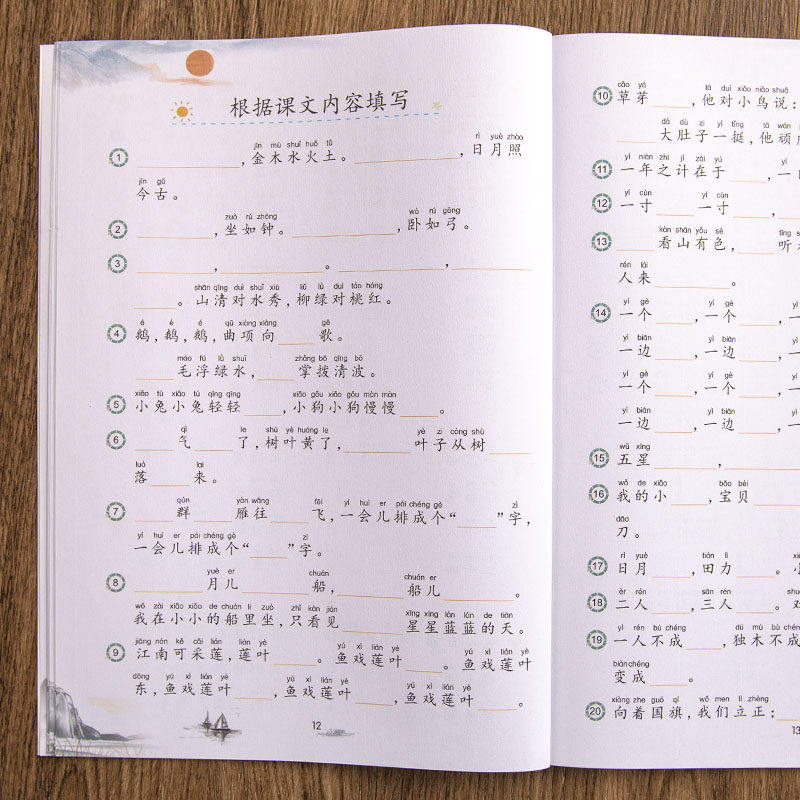 根据课文内容填写
jīn mù shuǐ huǒ tǔ rì yuè zhào
1 ________,金木水火土。________,日月照
jīn gǔ
今古。
zuò rú zhōng wò rú gōng
2 ________,坐如钟。________,卧如弓。
3 ________,________。________,________
shān qīng duì shuǐ xiù liǔ lǜ duì táo hóng
____。山清对水秀,柳绿对桃红。
é é é qū xiàng xiàng gē
4 鹅,鹅,鹅,曲项向____歌。
máo fú lǜ shuǐ zhǎng bō qīng bō
____毛浮绿水,____掌拨清波。
xiǎo tù xiǎo tù qīng qīng xiǎo gǒu xiǎo gǒu màn màn
5 小兔小兔轻轻____,小狗小狗慢慢____。
qì le shù yè huáng le yè zi cóng shù
6 ____气____了,树叶黄了,____叶子从树____
luò lai
落____来。
qún yàn wǎng fēi yí huì er pái chéng gè zì
7 ____群____雁往____飞,一会儿排成个“____”字,
yí huì er pái chéng gè zì
一会儿排成个“____”字。
chuán chuán er
8 ____月儿____船,____船儿____。
wǒ zài xiǎo xiǎo de chuán li zuò zhǐ kàn jiàn xīng xīng lán lán de tiān
我在小小的船里坐,只看见____星星蓝蓝的天。
jiāng nán kě cǎi lián lián yè yú xì lián yè yú xì lián yè
9 江南可采莲,莲叶____。鱼戏莲叶____。鱼戏莲叶
dōng yú xì lián yè yú xì lián yè yú xì lián yè
东,鱼戏莲叶____,鱼戏莲叶____,鱼戏莲叶____。
12
cǎo yá tā duì xiǎo niǎo shuō
10 草芽____,他对小鸟说:
dà dù zi yì tǐng tā wán
____大肚子一挺,他顽
yì nián zhī jì zài yú yì
11 一年之计在于____,一
yí cùn yí cùn
12 一寸____一寸____,
kàn shān yǒu sè tīng
13 ____看山有色,____听
rén lái
人来____。
yí gè yí gè
14 一个____,一个____,
yì biān yì biān
一边____,一边____,
yí gè yí gè
一个____,一个____,
yì biān yì biān
一边____,一边____,
wǔ xīng
15 五星____,
wǒ de xiǎo bǎo bèi
16 我的小____,宝贝____
dāo
刀。
rì yuè tián lì
17 日月____,田力____。小
èr rén sān rén shuāng
18 二人____,三人____。双
yì rén bù chéng dú mù bù chéng
19 一人不成____,独木不成
biàn chéng
变成____。
xiàng zhe guó qí wǒ men lì zhèng
20 向着国旗,我们立正;
13